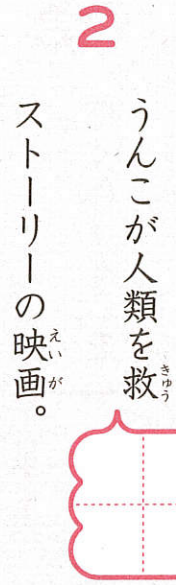 2
うんこが人類を救きゅう
ストーリーの映画えいが。